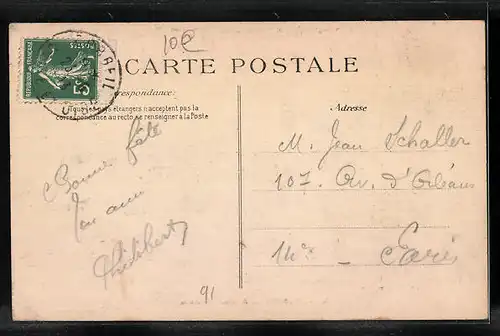 10€
CARTE POSTALE
POSTES
REPUBLIQUE FRANÇAISE
5c
respondance:
Tous les pays étrangers n'acceptent pas la
correspondance au recto se renseigner à la Poste
Adresse
Bonne fête
Ton ami
Philibert
M. Jean Schaller
107. Av. d'Orléans
14e - Paris
91